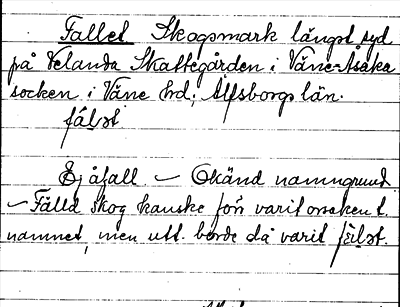 Fallet Skogsmark längst syd
på Velanda Skattegården i Väne-Åsaka
socken i Väne hd, Älfsborgs län.
fálet
Ej åfall. – Okänd namngrund
– Fälld skog kanske förr varit orsaken t.
namnet, men utt. borde då varit